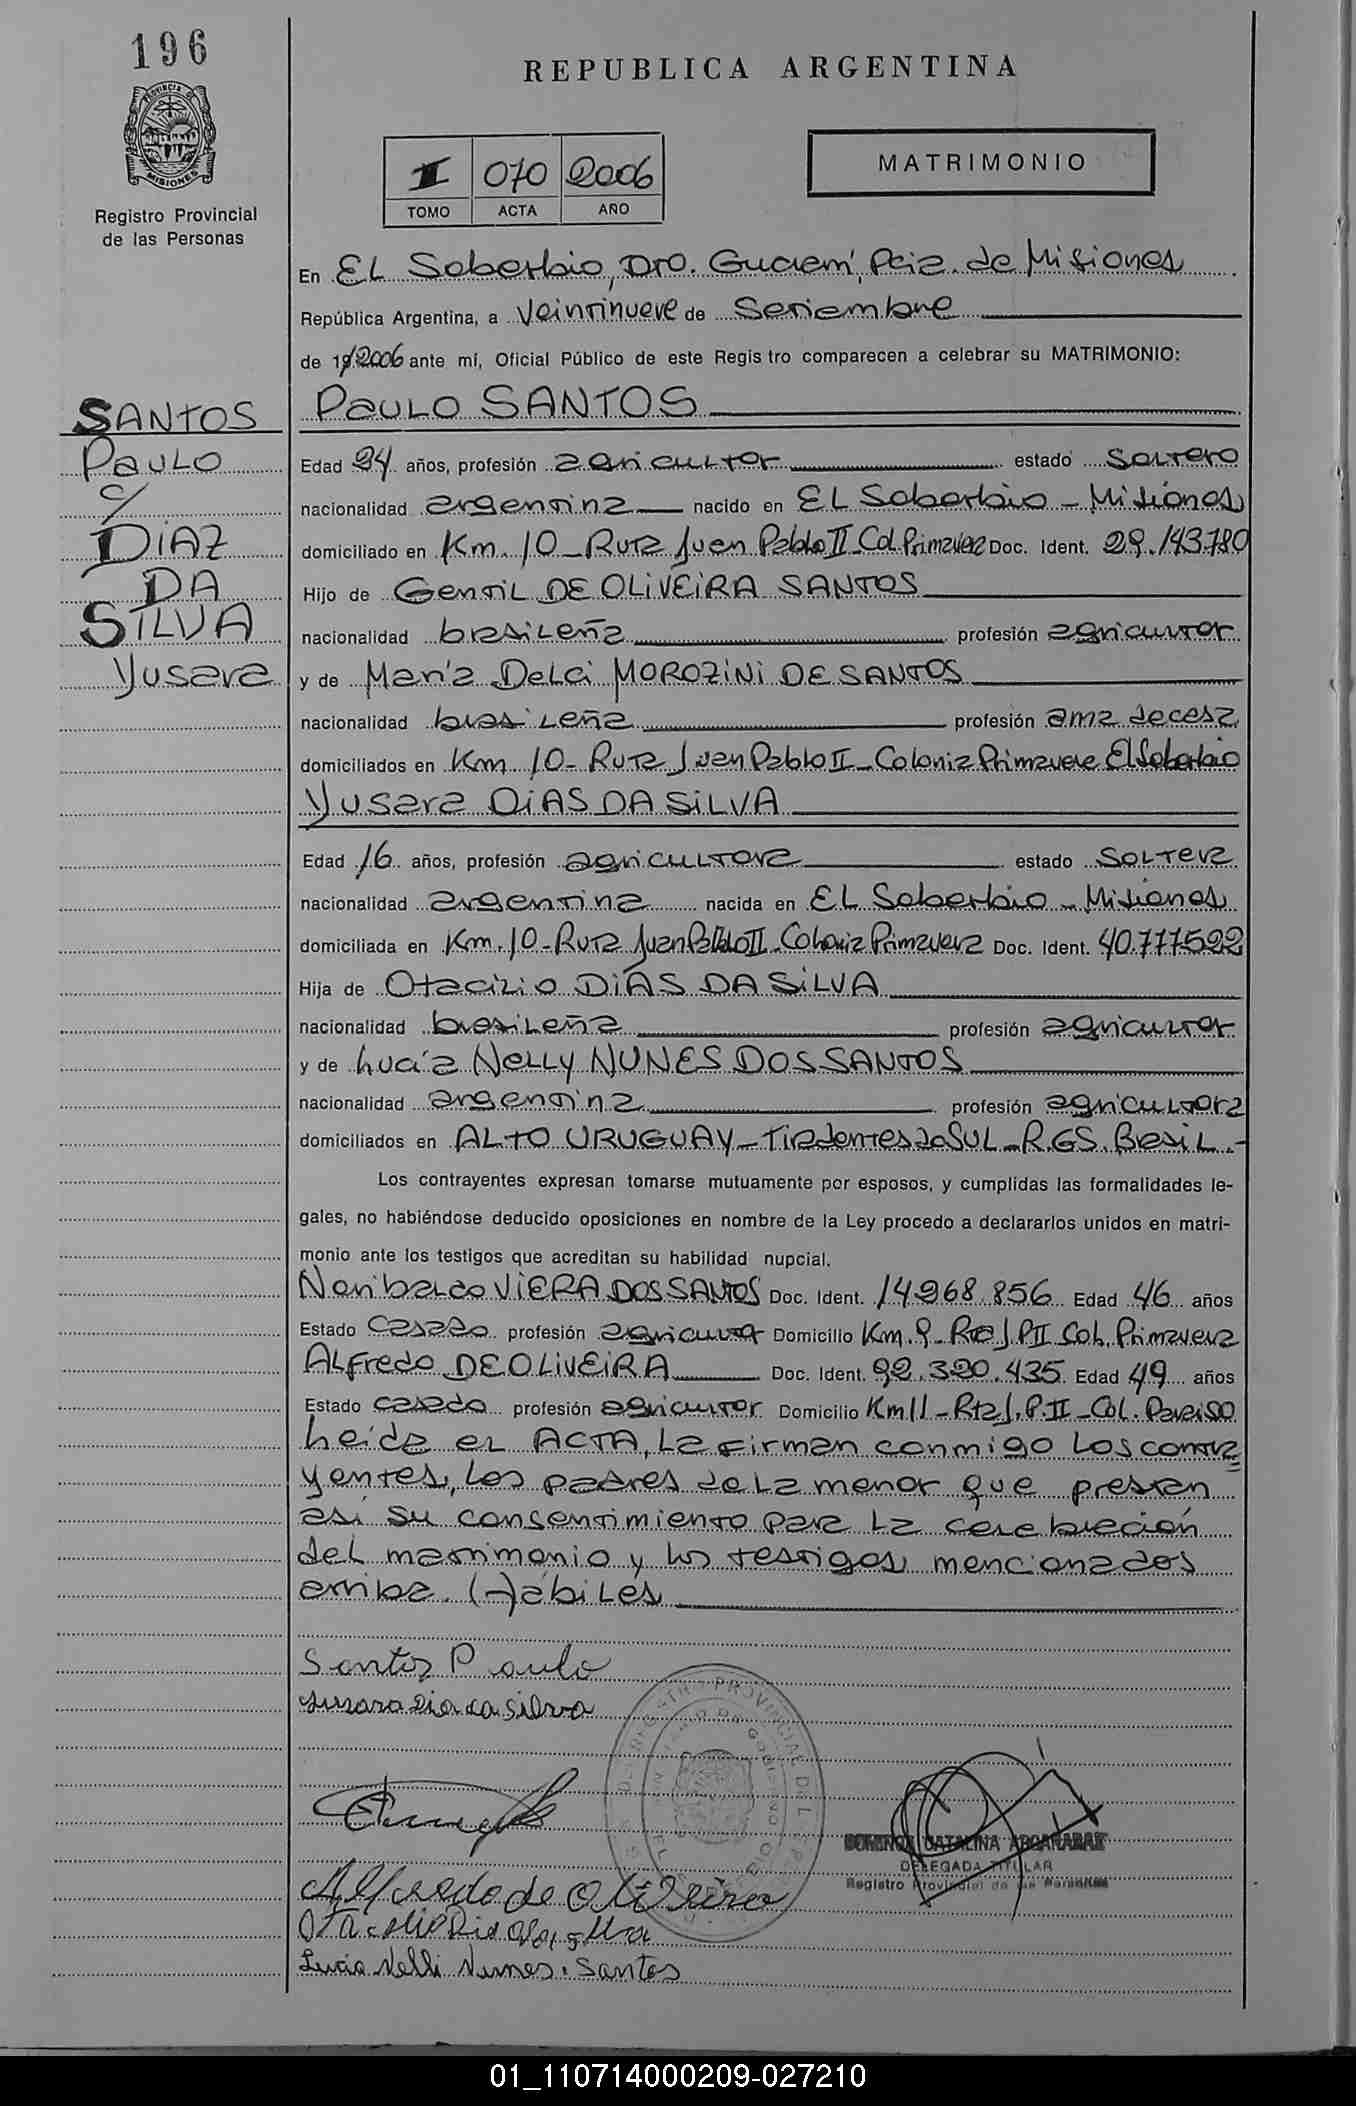 196
REPUBLICA ARGENTINA
PROVINCIA DE MISIONES
Registro Provincial
de las Personas
I 070 2006
TOMO ACTA AÑO
MATRIMONIO
En EL Soberbio, Dto. Guaraní, Pcia. de Misiones
República Argentina, a Veintinueve de Setiembre
de 19/2006 ante mí, Oficial Público de este Registro comparecen a celebrar su MATRIMONIO:
SANTOS
Paulo
c/
DiAZ
DA
SILVA
Yusara
Paulo SANTOS
Edad 24 años, profesión agricultor estado soltero
nacionalidad argentina nacido en EL Soberbio - Misiones
domiciliado en Km. 10 - Ruta Juan Pablo II - Col. Primavera Doc. Ident. 29.143.780
Hijo de Gentil DE OLiVEiRA SANTOS
nacionalidad brasileña profesión agricultor
y de María Delci MOROZiNi DE SANTOS
nacionalidad brasileña profesión ama de casa
domiciliados en Km 10 - Ruta Juan Pablo II - Colonia Primavera El Soberbio
Yusara DiAS DA SiLVA
Edad 16 años, profesión agricultora estado soltera
nacionalidad argentina nacida en EL Soberbio - Misiones
domiciliada en Km. 10 - Ruta Juan Pablo II - Colonia Primavera Doc. Ident. 40.777.522
Hija de Otacizio DiAS DA SiLVA
nacionalidad brasileña profesión agricultor
y de Lucía Nelly NUNES DOS SANTOS
nacionalidad argentina profesión agricultora
domiciliados en ALTO URUGUAY - Tiradentes do SUL - R.GS. Brasil.-
Los contrayentes expresan tomarse mutuamente por esposos, y cumplidas las formalidades le-
gales, no habiéndose deducido oposiciones en nombre de la Ley procedo a declararlos unidos en matri-
monio ante los testigos que acreditan su habilidad nupcial.
Neribaldo ViERA DOS SANTOS Doc. Ident. 14.968.856 Edad 46 años
Estado casado profesión agricultor Domicilio Km. 9 - Rta J.P.II Col. Primavera
Alfredo DE OLiVEiRA Doc. Ident. 92.320.435 Edad 49 años
Estado casado profesión agricultor Domicilio Km 11 - Rta J.P.II - Col. Paraiso
Leida el ACTA, La firman conmigo los contra
yentes, los padres de la menor que prestan
así su consentimiento para la celebración
del matrimonio y los testigos mencionados
arriba. Hábiles
Santos Paulo
Yusara Dia da silva
DOMINGA CATALINA
DELEGADA TITULAR
Registro Provincial de las Personas
Alfredo de Oliveira
Lucia Nelli Nunes. Santos
01_110714000209-027210